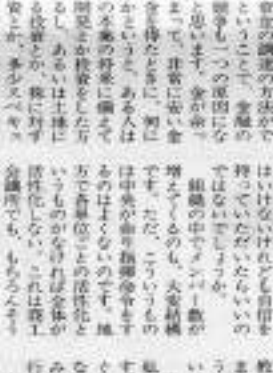 の調達の方法が
ということで、金融の
競争も一つの原因にな
と思います。金が余っ
まって、非常に安い金
金を得たときに、何に
かというと、ある人は
の本業の将来に備えて
開発とか投資をした方
るし、あるいは土地に
る投資とか、株に対す
資とか、多少スペキュ
はいけないけれども自信を
持っていただいたらいいの
ではないでしょうか。
組織の中でメンバー数が
増えてくるのも、大変結構
です。ただ、こういうもの
は中央が指揮命令をす
るのはよくないのです。地
方で各単位ごとの活性化と
いうものがなければ全体が
活性化しない。これは商工
会議所でも、もちろんそう